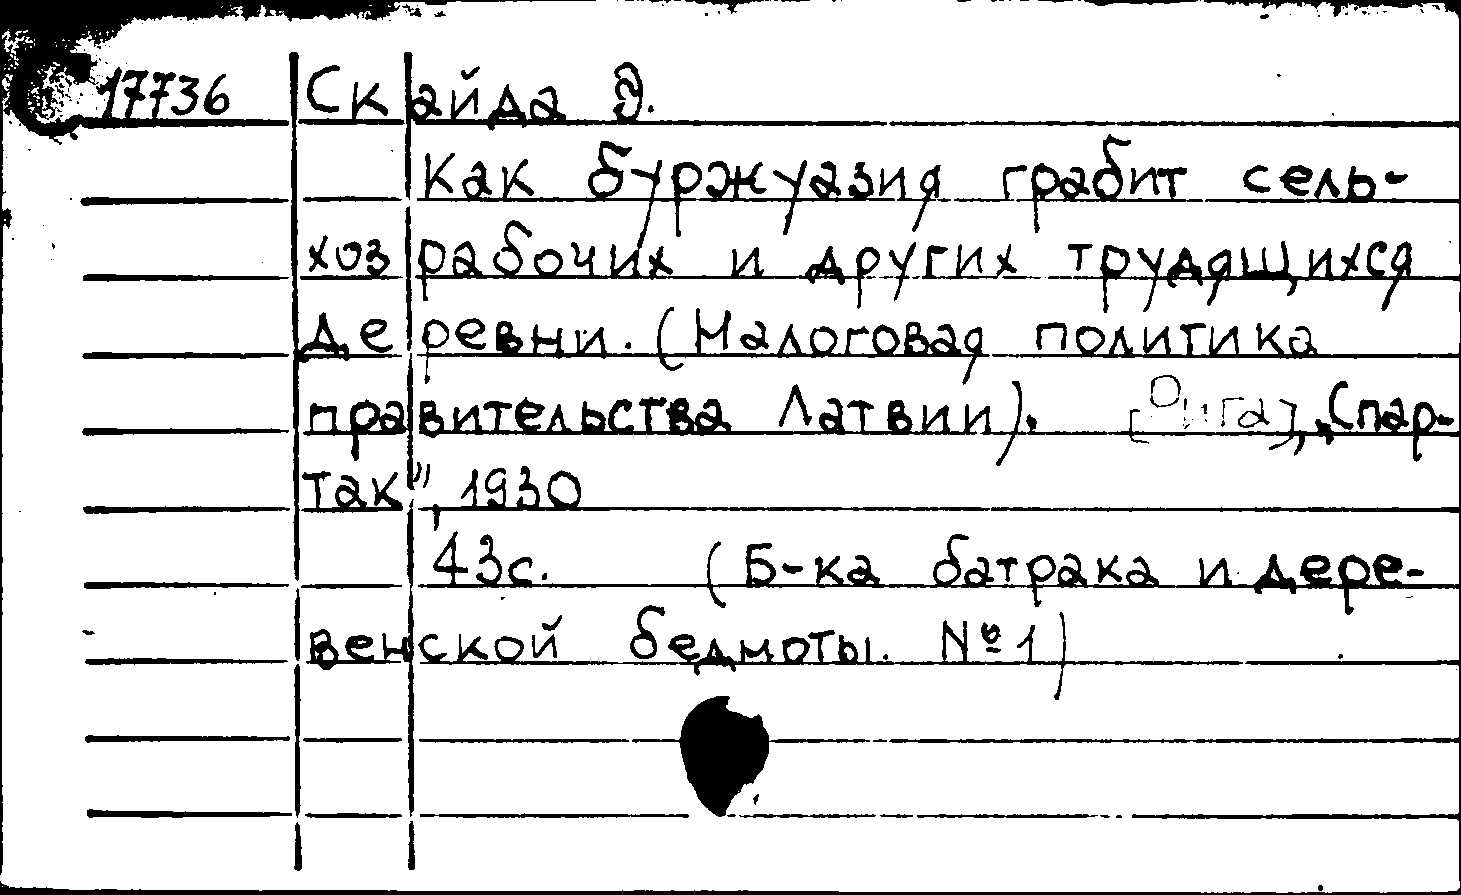 С 17736 Скайда Э.
Как буржуазия грабит сель-
хозрабочих и других трудящихся
деревни. (Налоговая политика
правительства Латвии). [Рига], „Спар-
так", 1930
43с. (Б-ка батрака и дере-
венской бедмоты. №1)